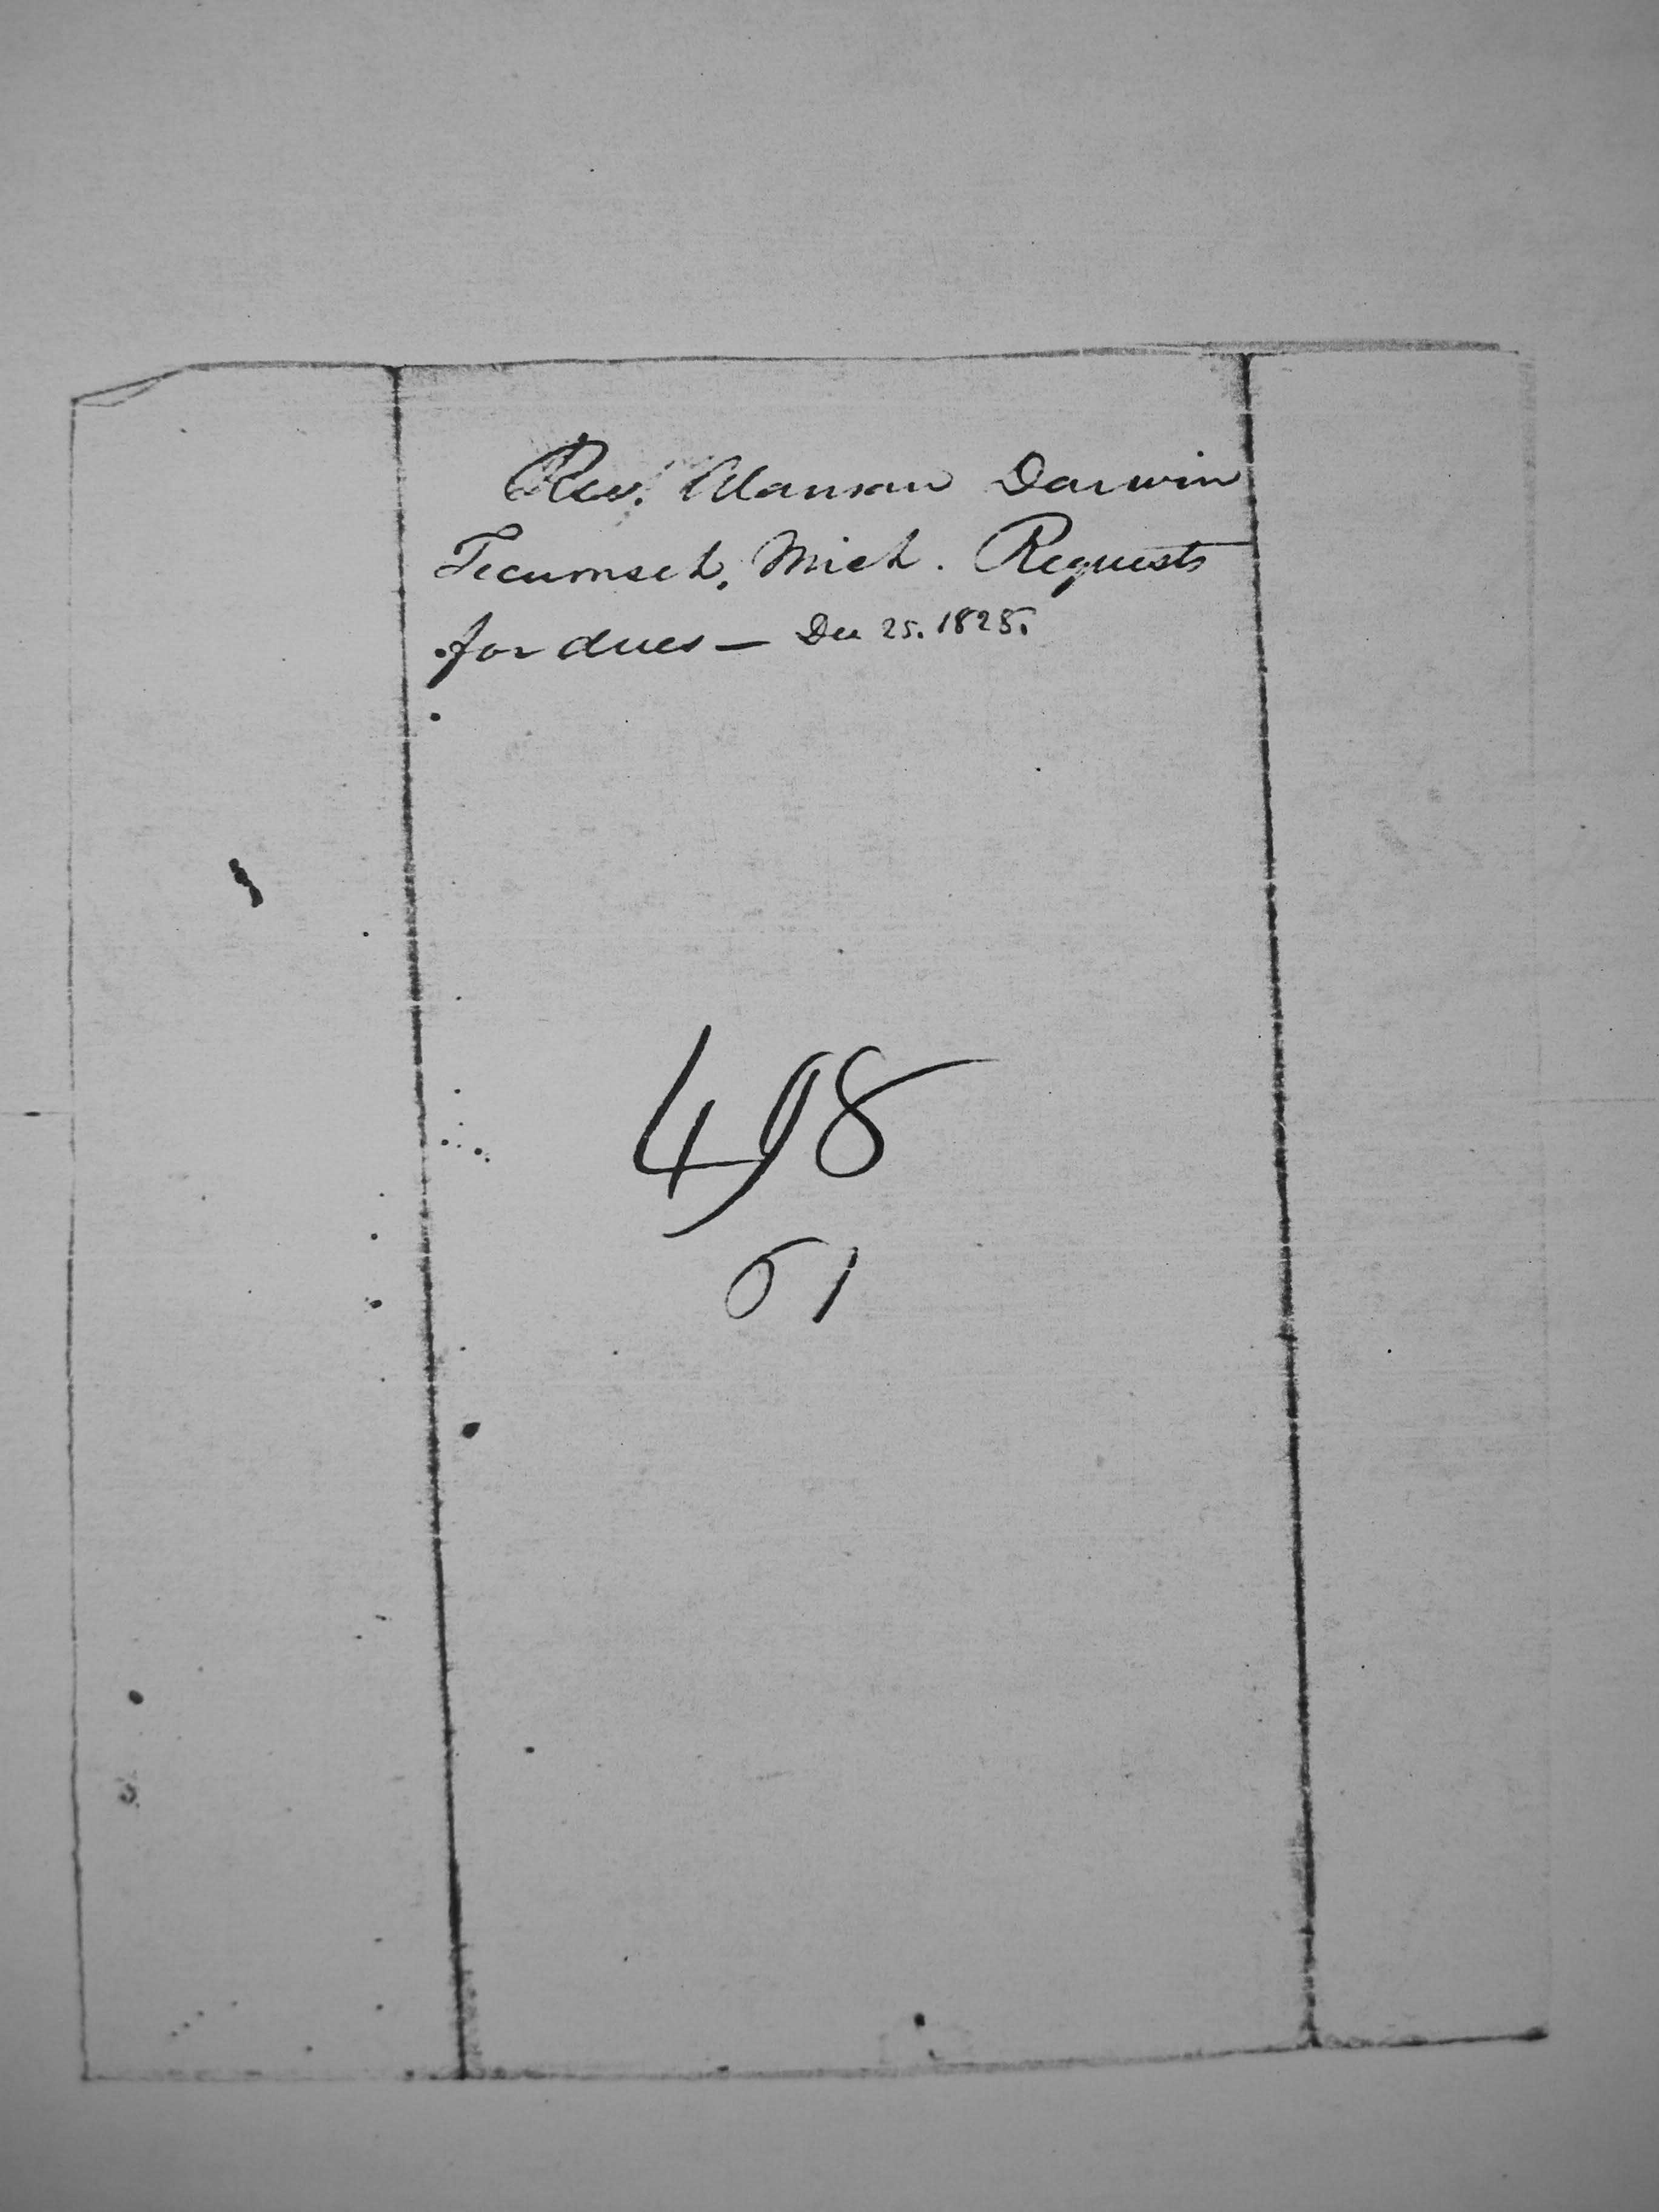 Rev. Alanson Darwin
Tecumseh, Mich. Requests
for dues — Dec 25. 1828.
498
51